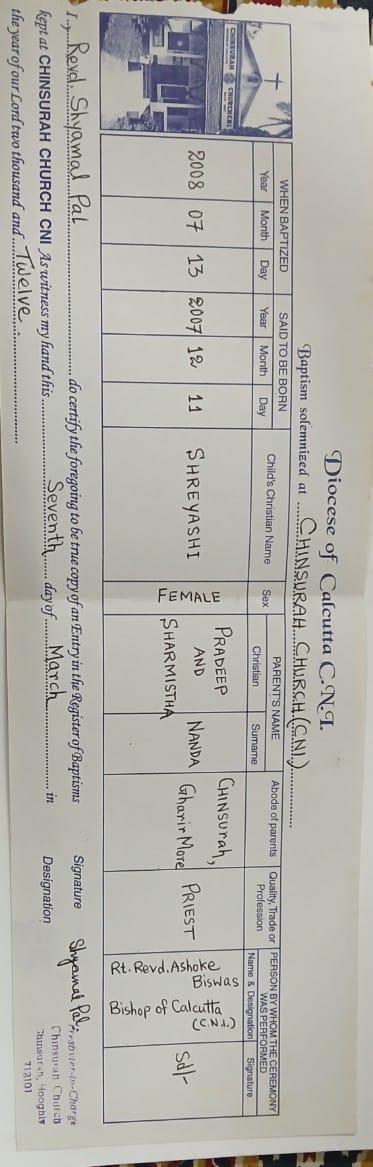 Diocese of Calcutta C.N.I.
Baptism solemnized at CHINSURAH CHURCH (CNI)
CHINSURAH CHURCH CNI
WHEN BAPTIZED
SAID TO BE BORN
Child's Christian Name
Sex
PARENT'S NAME
Abode of parents
Quality, Trade or Profession
PERSON BY WHOM THE CEREMONY WAS PERFORMED
Year Month Day Year Month Day
Christian Surname
Name & Designation Signature
2008 07 13 2007 12 11 SHREYASHI FEMALE
PRADEEP AND SHARMISTHA
NANDA
CHINSURAH,
Gharir More
PRIEST
Rt. Revd. Ashoke Biswas
Bishop of Calcutta
(C.N.I.)
Sd/-
I, Revd. Shyamal Pal do certify the foregoing to be true copy of an Entry in the Register of Baptisms
kept at CHINSURAH CHURCH CNI As witness my hand this Seventh day of March in
the year of our Lord two thousand and Twelve.
Signature Shyamal Pal
Designation
Presbyter-in-Charge
Chinsurah Church
Chinsurah, Hooghly
712101